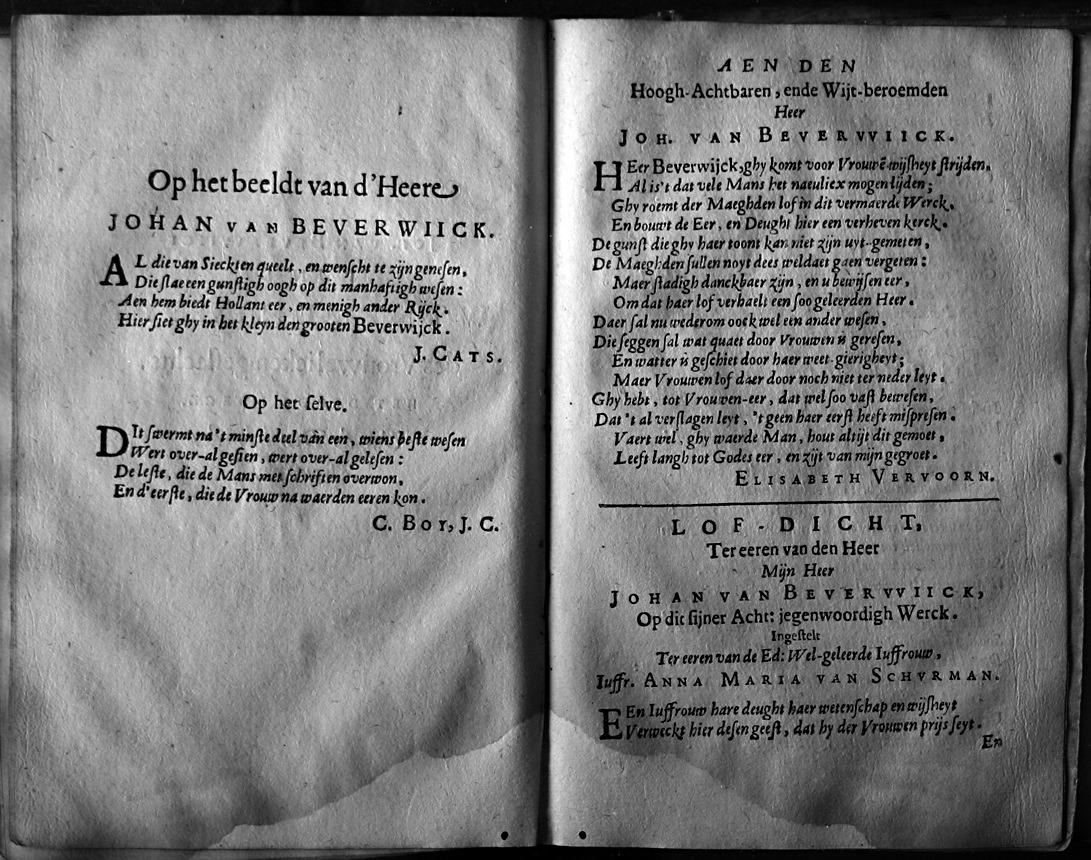 Op het beeldt van d'Heere
JOHAN VAN BEVERWIICK.
AL die van Sieckten queelt, en wenscht te zijn genesen,
Die slae een gunstigh oogh op dit manhaftigh wesen:
Aen hem biedt Hollant eer, en menigh ander Rijck.
Hier siet ghy in het kleyn den grooten Beverwijck.
J. CATS.
Op het selve.
DIt swermt na 't minste deel van een, wiens beste wesen
Wert over-al gesien, wert over-al gelesen:
De leste, die de Mans met schriften overwon,
En d'eerste, die de Vrouw na waerden eeren kon.
C. BOY, J. C.
AEN DEN
Hoogh-Achtbaren, ende Wijt-beroemden
Heer
JOH. VAN BEVERVVIICK.
HEer Beverwijck, ghy komt voor Vrouwē-wijsheyt strijden,
Al is't dat vele Mans het naeuliex mogen lijden;
Ghy roemt der Maeghden lof in dit vermaerde Werck,
En bouwt de Eer, en Deught hier een verheven kerck.
De gunst die ghy haer toont kan niet zijn uyt-gemeten,
De Maeghden sullen noyt dees weldaet gaen vergeten:
Maer stadigh danckbaer zijn, en u bewijsen eer,
Om dat haer lof verhaelt een soo geleerden Heer.
Daer sal nu wederom oock wel een ander wesen,
Die seggen sal wat quaet door Vrouwen is geresen,
En watter is geschiet door haer weet-gierigheyt;
Maer Vrouwen lof daer door noch niet ter neder leyt.
Ghy hebt, tot Vrouwen-eer, dat wel soo vast bewesen,
Dat 't al verslagen leyt, 't geen haer eerst heeft mispresen.
Vaert wel, ghy waerde Man, hout altijt dit gemoet,
Leeft langh tot Godes eer, en zijt van mijn gegroet.
ELISABETH VERVOORN.
LOF-DICHT,
Ter eeren van den Heer
Mijn Heer
JOHAN VAN BEVERVVIICK,
Op dit sijner Acht: jegenwoordigh Werck.
Ingestelt
Ter eeren van de Ed: Wel-geleerde Iuffrouw,
Iuffr. ANNA MARIA VAN SCHVRMAN.
EEn Iuffrouw hare deught haer wetenschap en wijsheyt
Verweckt hier desen geest, dat hy der Vrouwen prijs seyt.
En